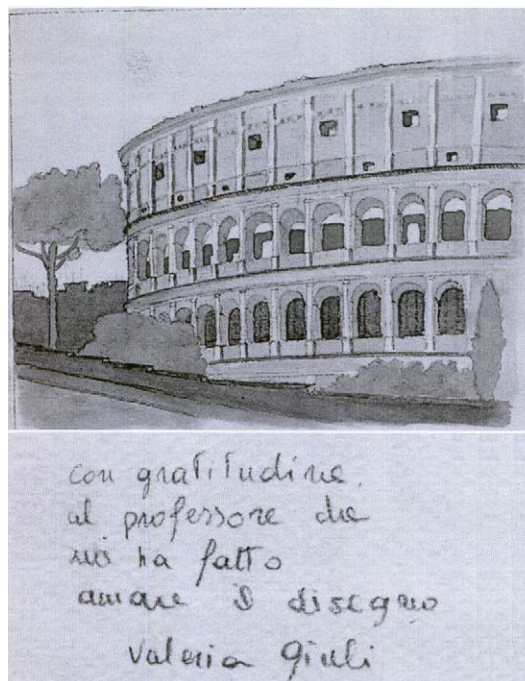 con gratitudine
al professore che
mi ha fatto
amare il disegno
Valeria Giuli